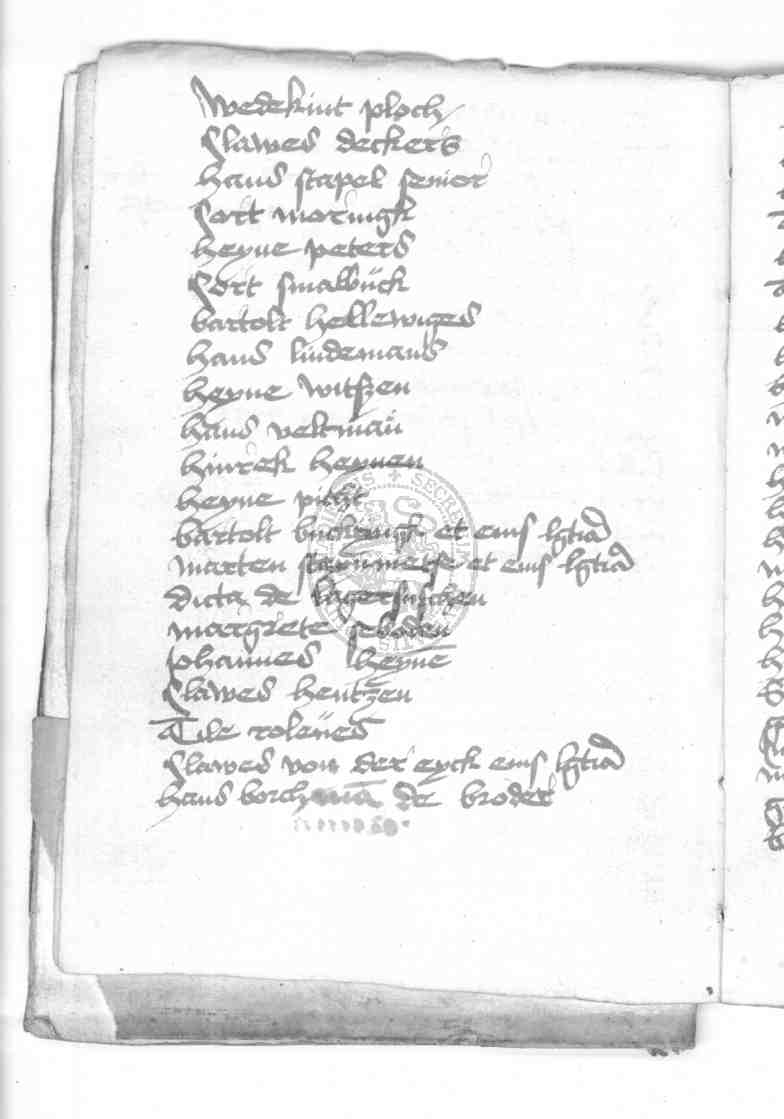 Wedekint ploch
Clawes deckers
hans stapel senior
Cort moringk
heyne peters
Cort smalbuck
bartolt hellewiges
hans lindemans
heyne witszen
hans veltman
hinrek heynen
heyne picht
bartolt et eius
marten et eius
dicta de
margrete geboden
Johannes heynē
Clawes hentzen
Tile rolenes
Clawes von der eyck eius
hans borchmā de broder